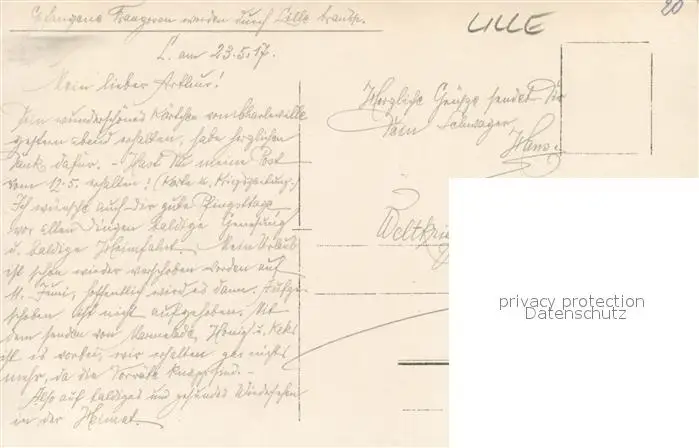 Gefangene Franzosen werden durch Lille transp.
20
LILLE
L. am 23.5.17.
Mein lieber Arthur!
Dein wunderschönes Kärtchen von Charleville
gestern abend erhalten, habe herzlichen
Dank dafür. Hast Du meine Post
vom 12.5. erhalten! (Karte u. Kriegszeitung.)
Ich wünsche auch dir gute Pfingsttage
vor allen dingen baldige Genesung
u. baldige Heimfahrt. Mein Urlaub
ist schon wieder verschoben worden auf
11. Juni, hoffentlich wird es dann. Aufge-
schoben ist nicht aufgehoben. Mit
dem senden von Marmelade, Honig u. Keks
ist es vorbei, wir erhalten gar nichts
mehr, da die Vorräte knapp sind.-
Also auf baldiges und gesundes Wiedersehen
in der Heimat.
Herzliche Grüße sendet Dir
Dein Schwager
Hans.
Weltkrie
privacy protection
Datenschutz